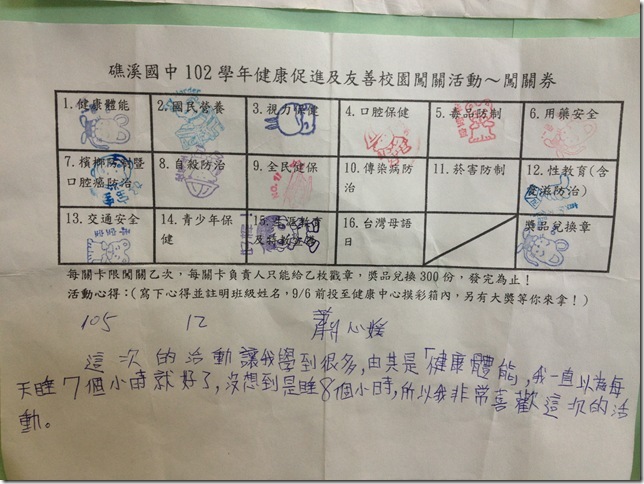 礁溪國中 102 學年健康促進及友善校園闖關活動～闖關券
1.健康體能 2.國民營養 3.視力保健 4.口腔保健 5.毒品防制 6.用藥安全
7.檳榔防制暨口腔癌防治 8.自殺防治 9.全民健保 10.傳染病防治 11.菸害防制 12.性教育(含愛滋防治)
13.交通安全 14.青少年保健 16.台灣母語日 獎品兌換章
每關卡限闖關乙次，每關卡負責人只能給乙枚戳章，獎品兌換300份，發完為止！
活動心得：(寫下心得並註明班級姓名，9/6前投至健康中心摸彩箱內，另有大獎等你來拿！)
105 12 心媛
這次的活動讓我學到很多,由其是「健康體能,我一直以為每
天睡7個小時就好了,沒想到是睡8個小時,所以我非常喜歡這次的活
動。